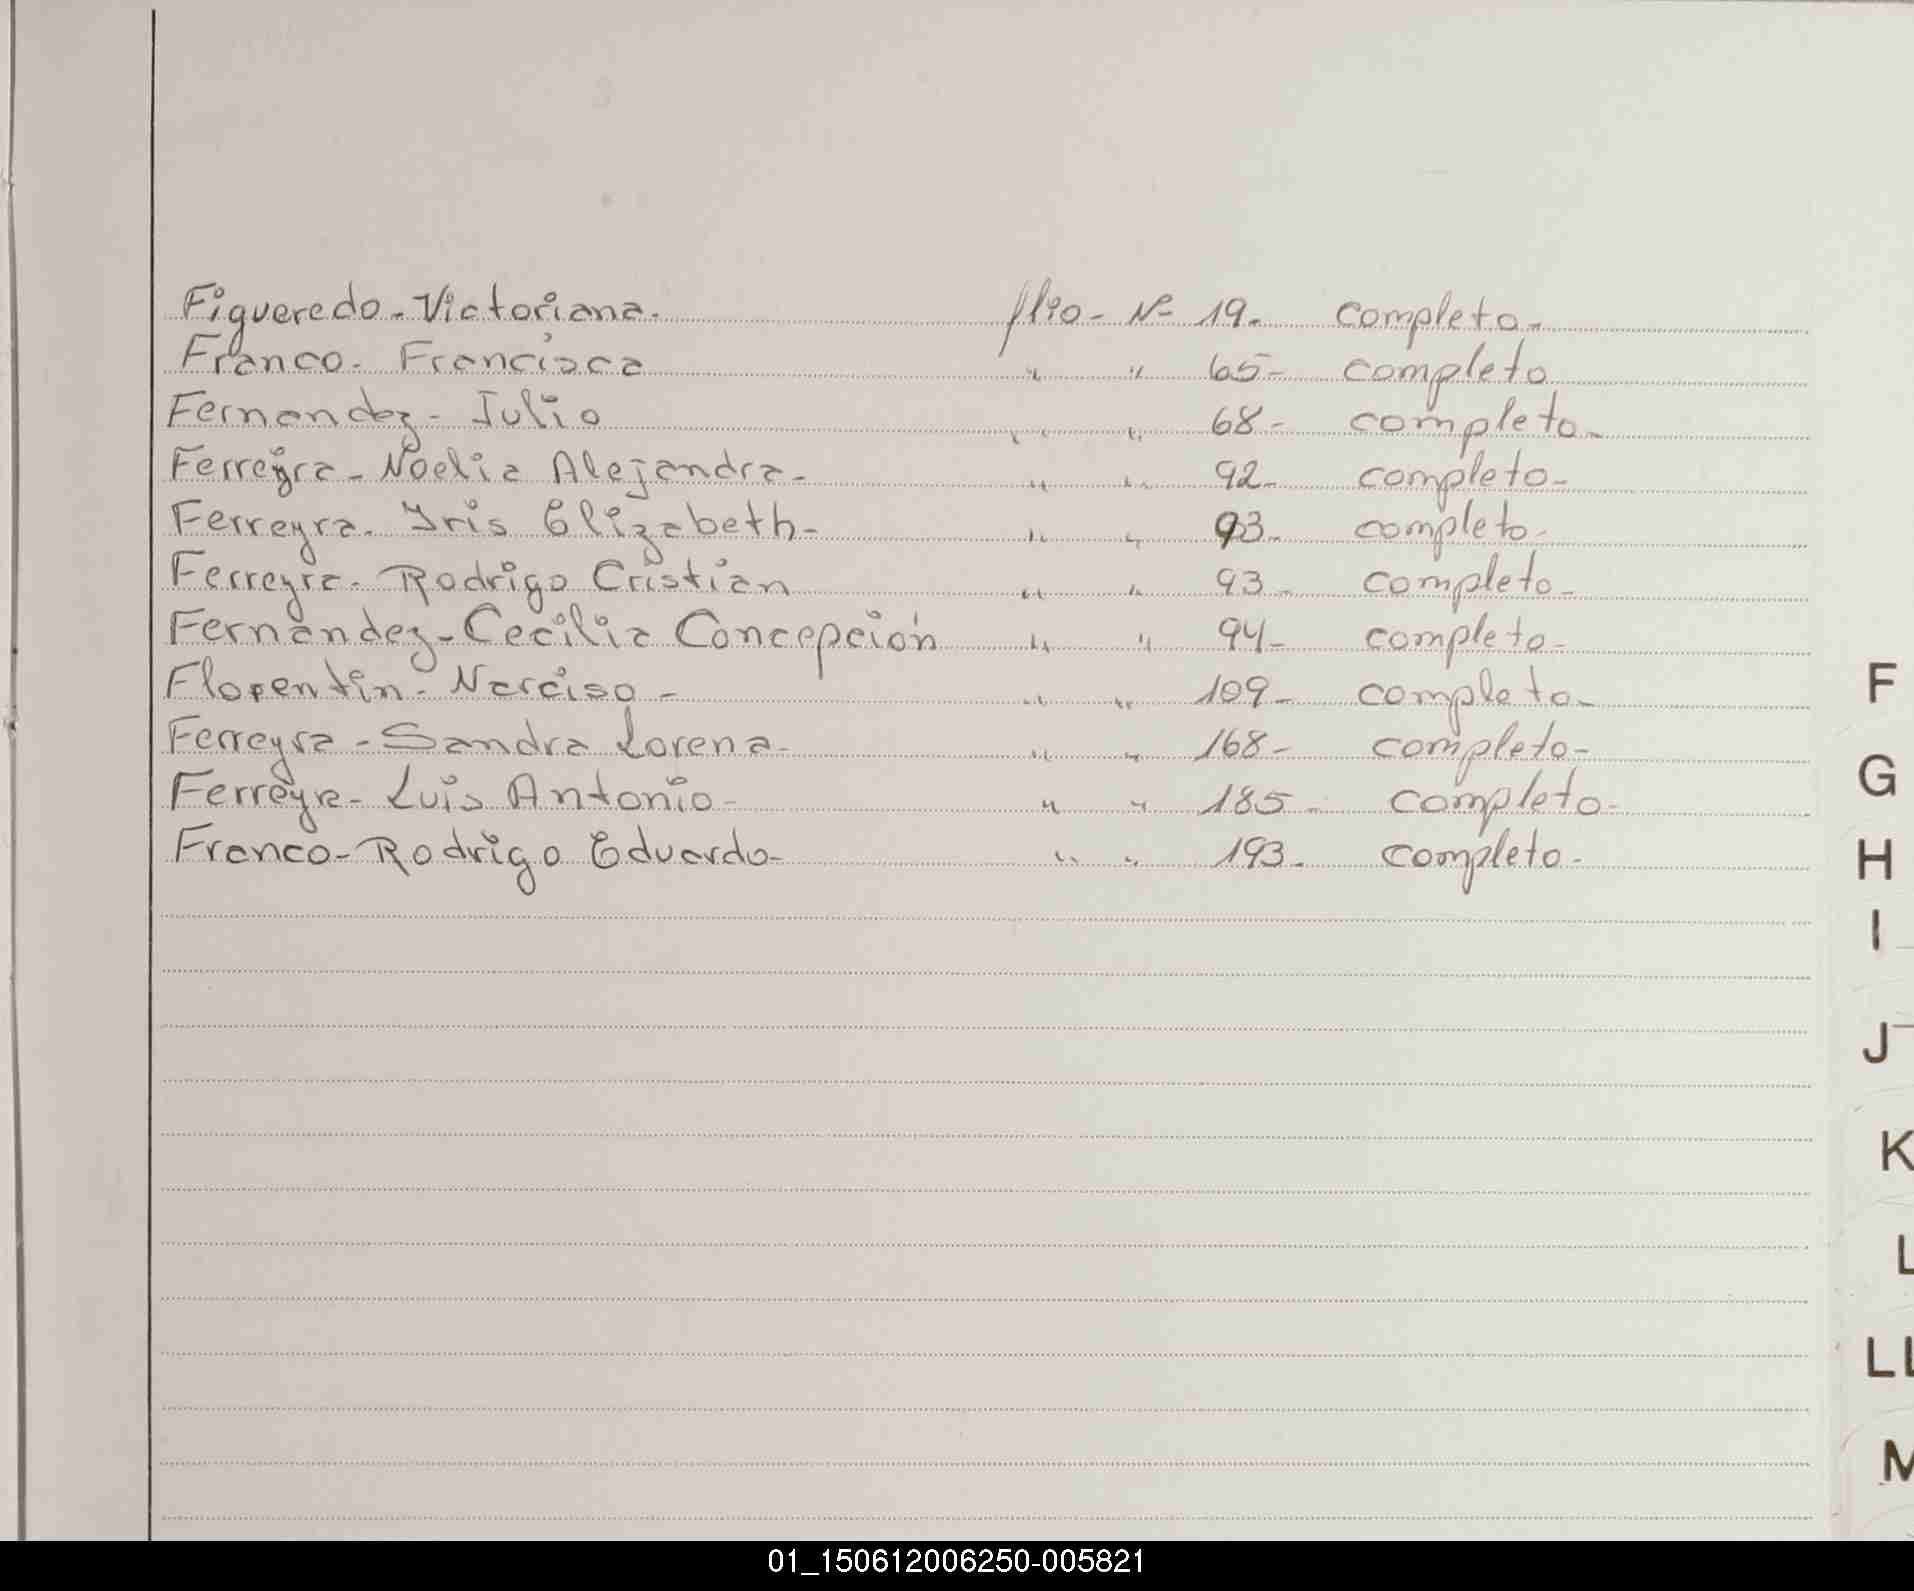 Figueredo - Victoriana. flio - Nº 19. completo -
Franco - Francisca " " 65 - completo
Fernandez - Julio " " 68 - completo -
Ferreyra - Noelia Alejandra - " " 92 - completo -
Ferreyra - Yris Elizabeth - " " 93 - completo -
Ferreyra - Rodrigo Cristian " " 93 - completo -
Fernandez - Cecilia Concepción " " 94 - completo -
Florentin - Narciso - " " 109 - completo -
Ferreyra - Sandra Lorena - " " 168 - completo -
Ferreyra - Luis Antonio - " " 185 - completo -
Franco - Rodrigo Eduardo - " " 193 - completo -
F
G
H
I
J
K
L
LL
M
01_150612006250-005821